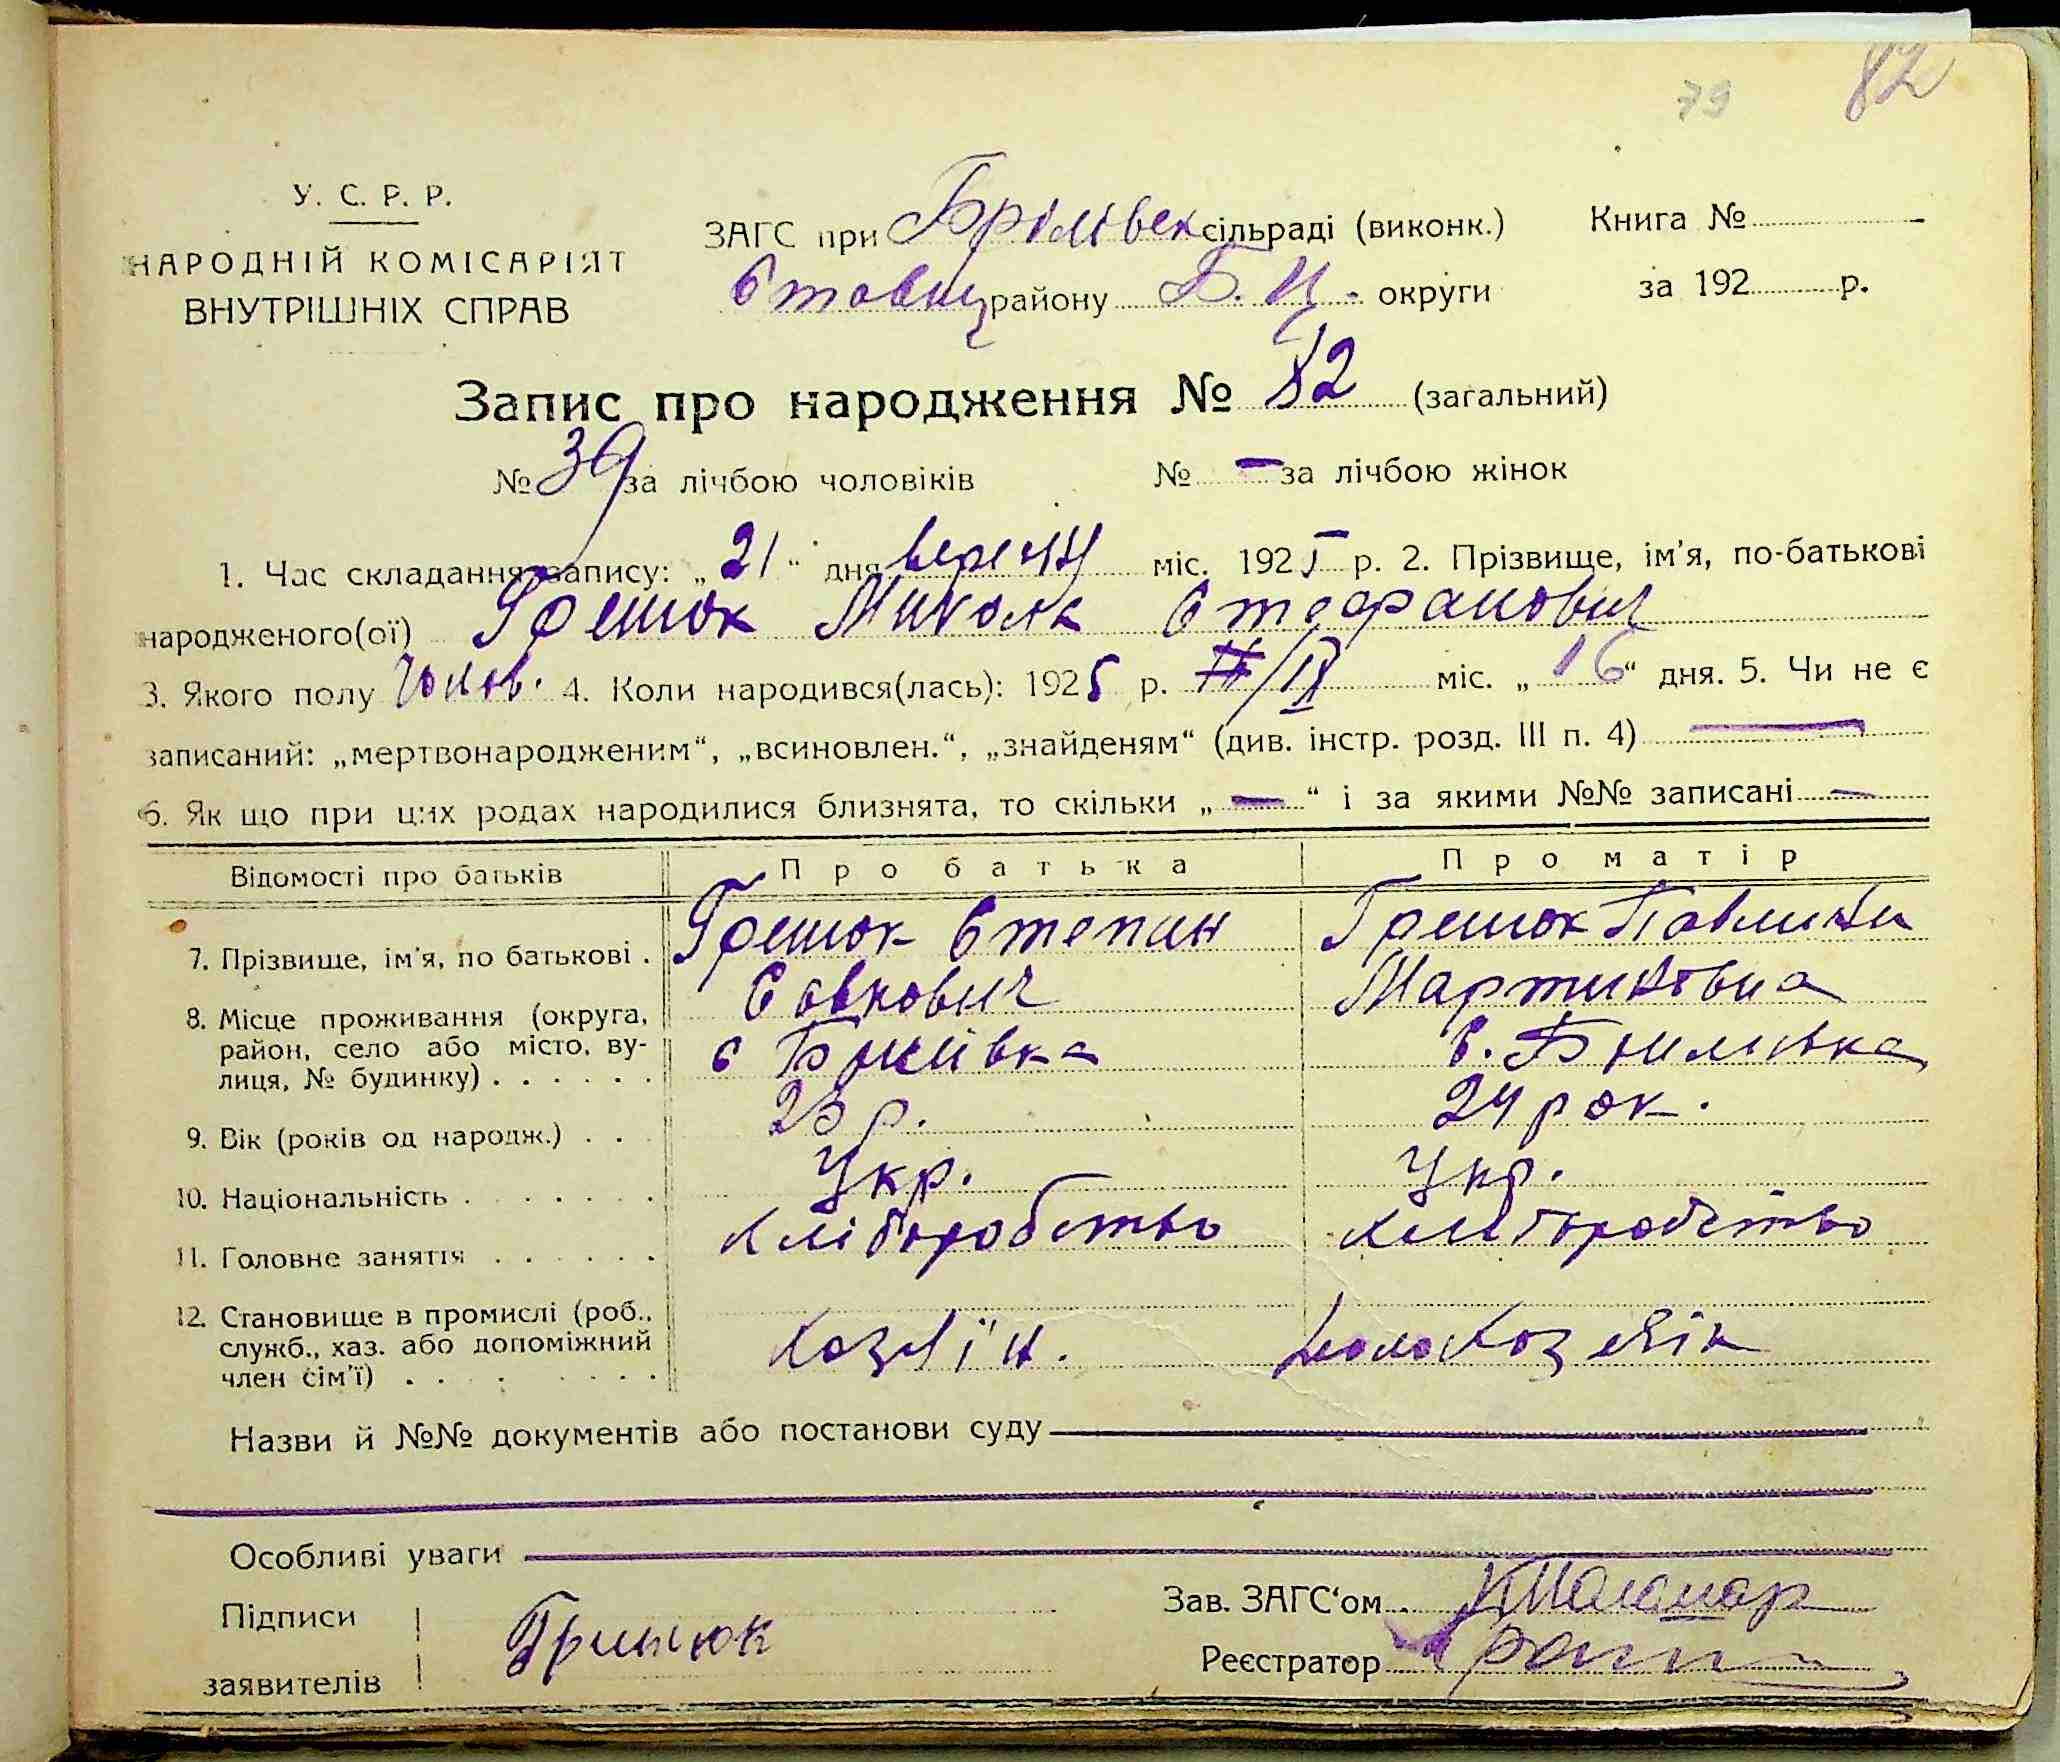 79 82
У. С. Р. Р.
НАРОДНІЙ КОМІСАРІЯТ
ВНУТРІШНІХ СПРАВ
ЗАГС при Брілівск сільраді (виконк.) Книга №
Ставищ району Б. Ц. округи за 192 р.
Запис про народження № 82 (загальний)
№ 39 за лічбою чоловіків № — за лічбою жінок
1. Час складання запису: „ 21 “ дня міс. 1925 р. 2. Прізвище, ім'я, по-батькові
народженого(ої) Грешок Микола Стефанович
3. Якого полу Чолов. 4. Коли народився(лась): 1925 р. /IX міс. „ 16 “ дня. 5. Чи не є
записаний: „мертвонародженим“, „всиновлен.“, „знайденям“ (див. інстр. розд. III п. 4) —
6. Як що при цих родах народилися близнята, то скільки „ — “ і за якими №№ записані —
Відомості про батьків Про батька Про матір
7. Прізвище, ім'я, по батькові . Грешок Степан Грешок
Савкович Мартиновна
8. Місце проживання (округа,
район, село або місто, ву-
лиця, № будинку) . . . . . . с с. Брилівка
9. Вік (років од народж.) . . 23 р. 24 рок.
10. Національність . . . . . . . Укр. Укр.
11. Головне заняття . . . . . . хліборобство хліборобство
12. Становище в промислі (роб.,
служб., хаз. або допоміжний
член сім'ї) . . . . . . . . Хазяїн.
Назви й №№ документів або постанови суду —
Особливі уваги —
Підписи
заявителів Гришок
Зав. ЗАГС'ом . Паламар
Реєстратор